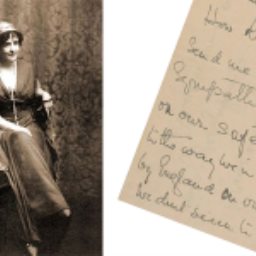 How
Send me
Sympath
on our safe
to the way we
by England on
We don't seem to